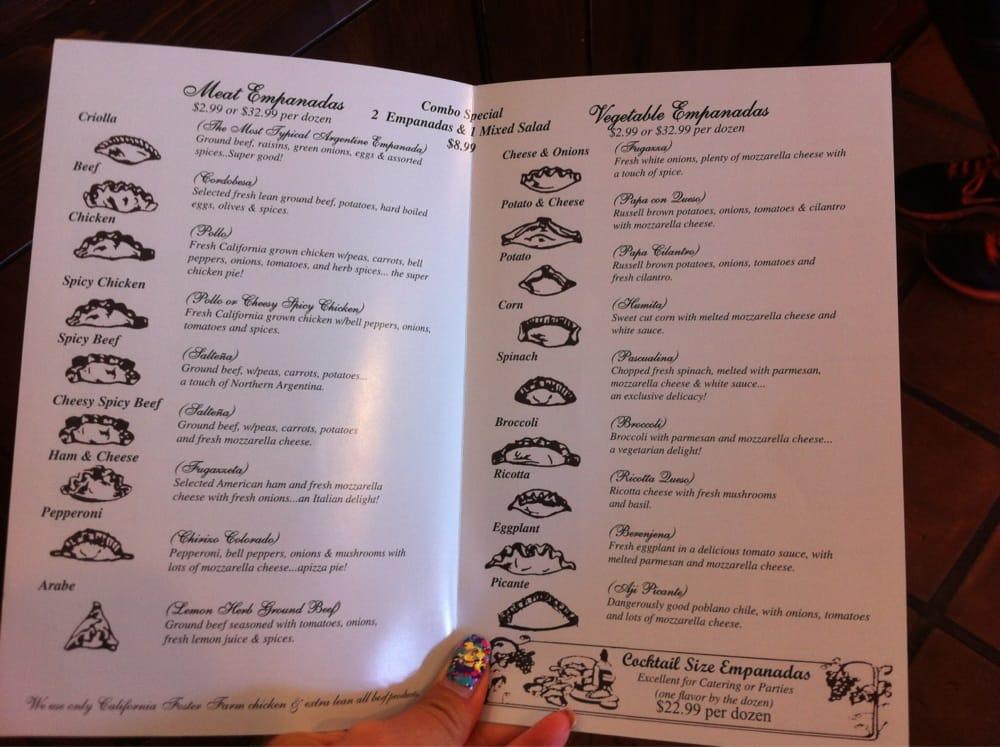 Meat Empanadas
$2.99 or $32.99 per dozen
Combo Special
2 Empanadas & 1 Mixed Salad
$8.99
Criolla
(The Most Typical Argentine Empanada)
Ground beef, raisins, green onions, eggs & assorted
spices..Super good!
Beef
(Cordobesa)
Selected fresh lean ground beef, potatoes, hard boiled
eggs, olives & spices.
Chicken
(Pollo)
Fresh California grown chicken w/peas, carrots, bell
peppers, onions, tomatoes, and herb spices... the super
chicken pie!
Spicy Chicken
(Pollo or Cheesy Spicy Chicken)
Fresh California grown chicken w/bell peppers, onions,
tomatoes and spices.
Spicy Beef
(Salteña)
Ground beef, w/peas, carrots, potatoes...
a touch of Northern Argentina.
Cheesy Spicy Beef
(Salteña)
Ground beef, w/peas, carrots, potatoes
and fresh mozzarella cheese.
Ham & Cheese
(Fugazzeta)
Selected American ham and fresh mozzarella
cheese with fresh onions...an Italian delight!
Pepperoni
(Chirizo Colorado)
Pepperoni, bell peppers, onions & mushrooms with
lots of mozzarella cheese...apizza pie!
Arabe
(Lemon Herb Ground Beef)
Ground beef seasoned with tomatoes, onions,
fresh lemon juice & spices.
We use only California Foster Farm chicken & extra lean all beef products
Vegetable Empanadas
$2.99 or $32.99 per dozen
Cheese & Onions
(Fugazza)
Fresh white onions, plenty of mozzarella cheese with
a touch of spice.
Potato & Cheese
(Papa con Queso)
Russell brown potatoes, onions, tomatoes & cilantro
with mozzarella cheese.
Potato
(Papa Cilantro)
Russell brown potatoes, onions, tomatoes and
fresh cilantro.
Corn
(Humita)
Sweet cut corn with melted mozzarella cheese and
white sauce.
Spinach
(Pascualina)
Chopped fresh spinach, melted with parmesan,
mozzarella cheese & white sauce...
an exclusive delicacy!
Broccoli
(Broccoli)
Broccoli with parmesan and mozzarella cheese...
a vegetarian delight!
Ricotta
(Ricotta Queso)
Ricotta cheese with fresh mushrooms
and basil.
Eggplant
(Berenjena)
Fresh eggplant in a delicious tomato sauce, with
melted parmesan and mozzarella cheese.
Picante
(Aji Picante)
Dangerously good poblano chile, with onions, tomatoes
and lots of mozzarella cheese.
Cocktail Size Empanadas
Excellent for Catering or Parties
(one flavor by the dozen)
$22.99 per dozen